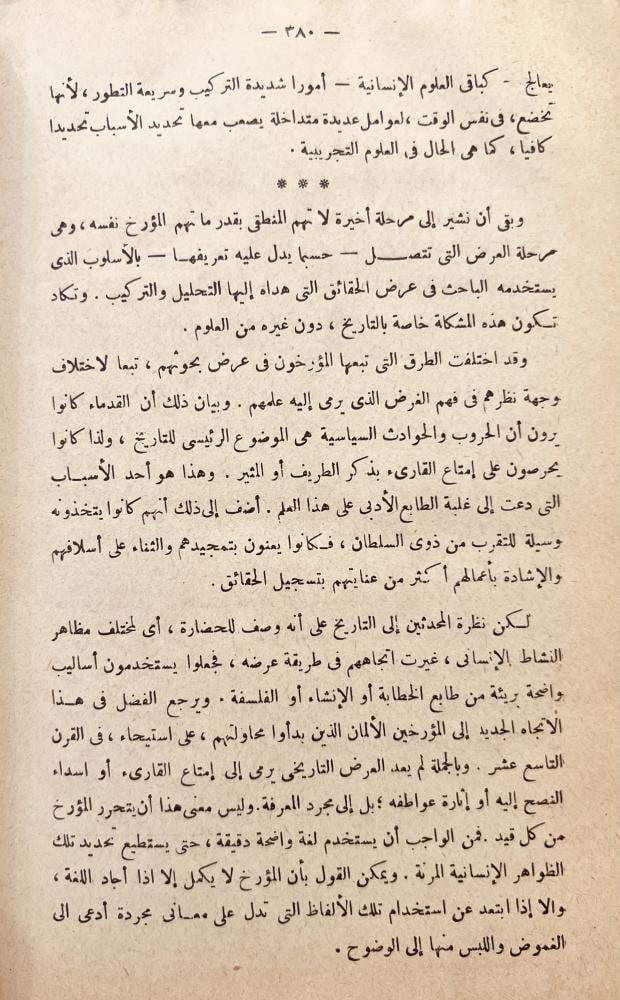 — ٣٨٠ —
يعالج - كباقى العلوم الإنسانية — أمورا شديدة التركيب وسريعة التطور ، لأنها
تخضع ، فى نفس الوقت ، لعوامل عديدة متداخلة يصعب معها تحديد الأسباب تحديدا
كافيا ، كما هى الحال فى العلوم التجريبية .
* * *
وبقى أن نشير إلى مرحلة أخيرة لا تهم المنطقى بقدر ما تهم المؤرخ نفسه ، وهى
مرحلة العرض التى تتصل — حسبما يدل عليه تعريفها — بالأسلوب الذى
يستخدمه الباحث فى عرض الحقائق التى هداه إليها التحليل والتركيب . وتكاد
تكون هذه المشكلة خاصة بالتاريخ ، دون غيره من العلوم .
وقد اختلفت الطرق التى تبعها المؤرخون فى عرض بحوثهم ، تبعا لاختلاف
وجهة نظرهم فى فهم الغرض الذى يرمى إليه علمهم . وبيان ذلك أن القدماء كانوا
يرون أن الحروب والحوادث السياسية هى الموضوع الرئيسى للتاريخ ، ولذا كانوا
يحرصون على إمتاع القارىء بذكر الطريف أو المثير . وهذا هو أحد الأسباب
التى دعت إلى غلبة الطابع الأدبى على هذا العلم . أضف إلى ذلك أنهم كانوا يتخذونه
وسيلة للتقرب من ذوى السلطان ، فكانوا يعنون بتمجيدهم والثناء على أسلافهم
والإشادة بأعمالهم أكثر من عنايتهم بتسجيل الحقائق .
لكن نظرة المحدثين إلى التاريخ على أنه وصف للحضارة ، أى لمختلف مظاهر
النشاط الإنسانى ، غيرت اتجاههم فى طريقة عرضه ، فجعلوا يستخدمون أساليب
واضحة بريئة من طابع الخطابة أو الإنشاء أو الفلسفة . ويرجع الفضل فى هذا
الاتجاه الجديد إلى المؤرخين الألمان الذين بدأوا محاولتهم ، على استيحاء ، فى القرن
التاسع عشر . وبالجملة لم يعد العرض التاريخى يرمى إلى إمتاع القارىء أو اسداء
النصح إليه أو إثارة عواطفه ؛ بل إلى مجرد المعرفة. وليس معنى هذا أن يتحرر المؤرخ
من كل قيد . فمن الواجب أن يستخدم لغة واضحة دقيقة ، حتى يستطيع تحديد تلك
الظواهر الإنسانية المرنة . ويمكن القول بأن المؤرخ لا يكمل إلا اذا أجاد اللغة ،
والا إذا ابتعد عن استخدام تلك الألفاظ التى تدل على معانى مجردة أدعى الى
الغموض واللبس منها إلى الوضوح .